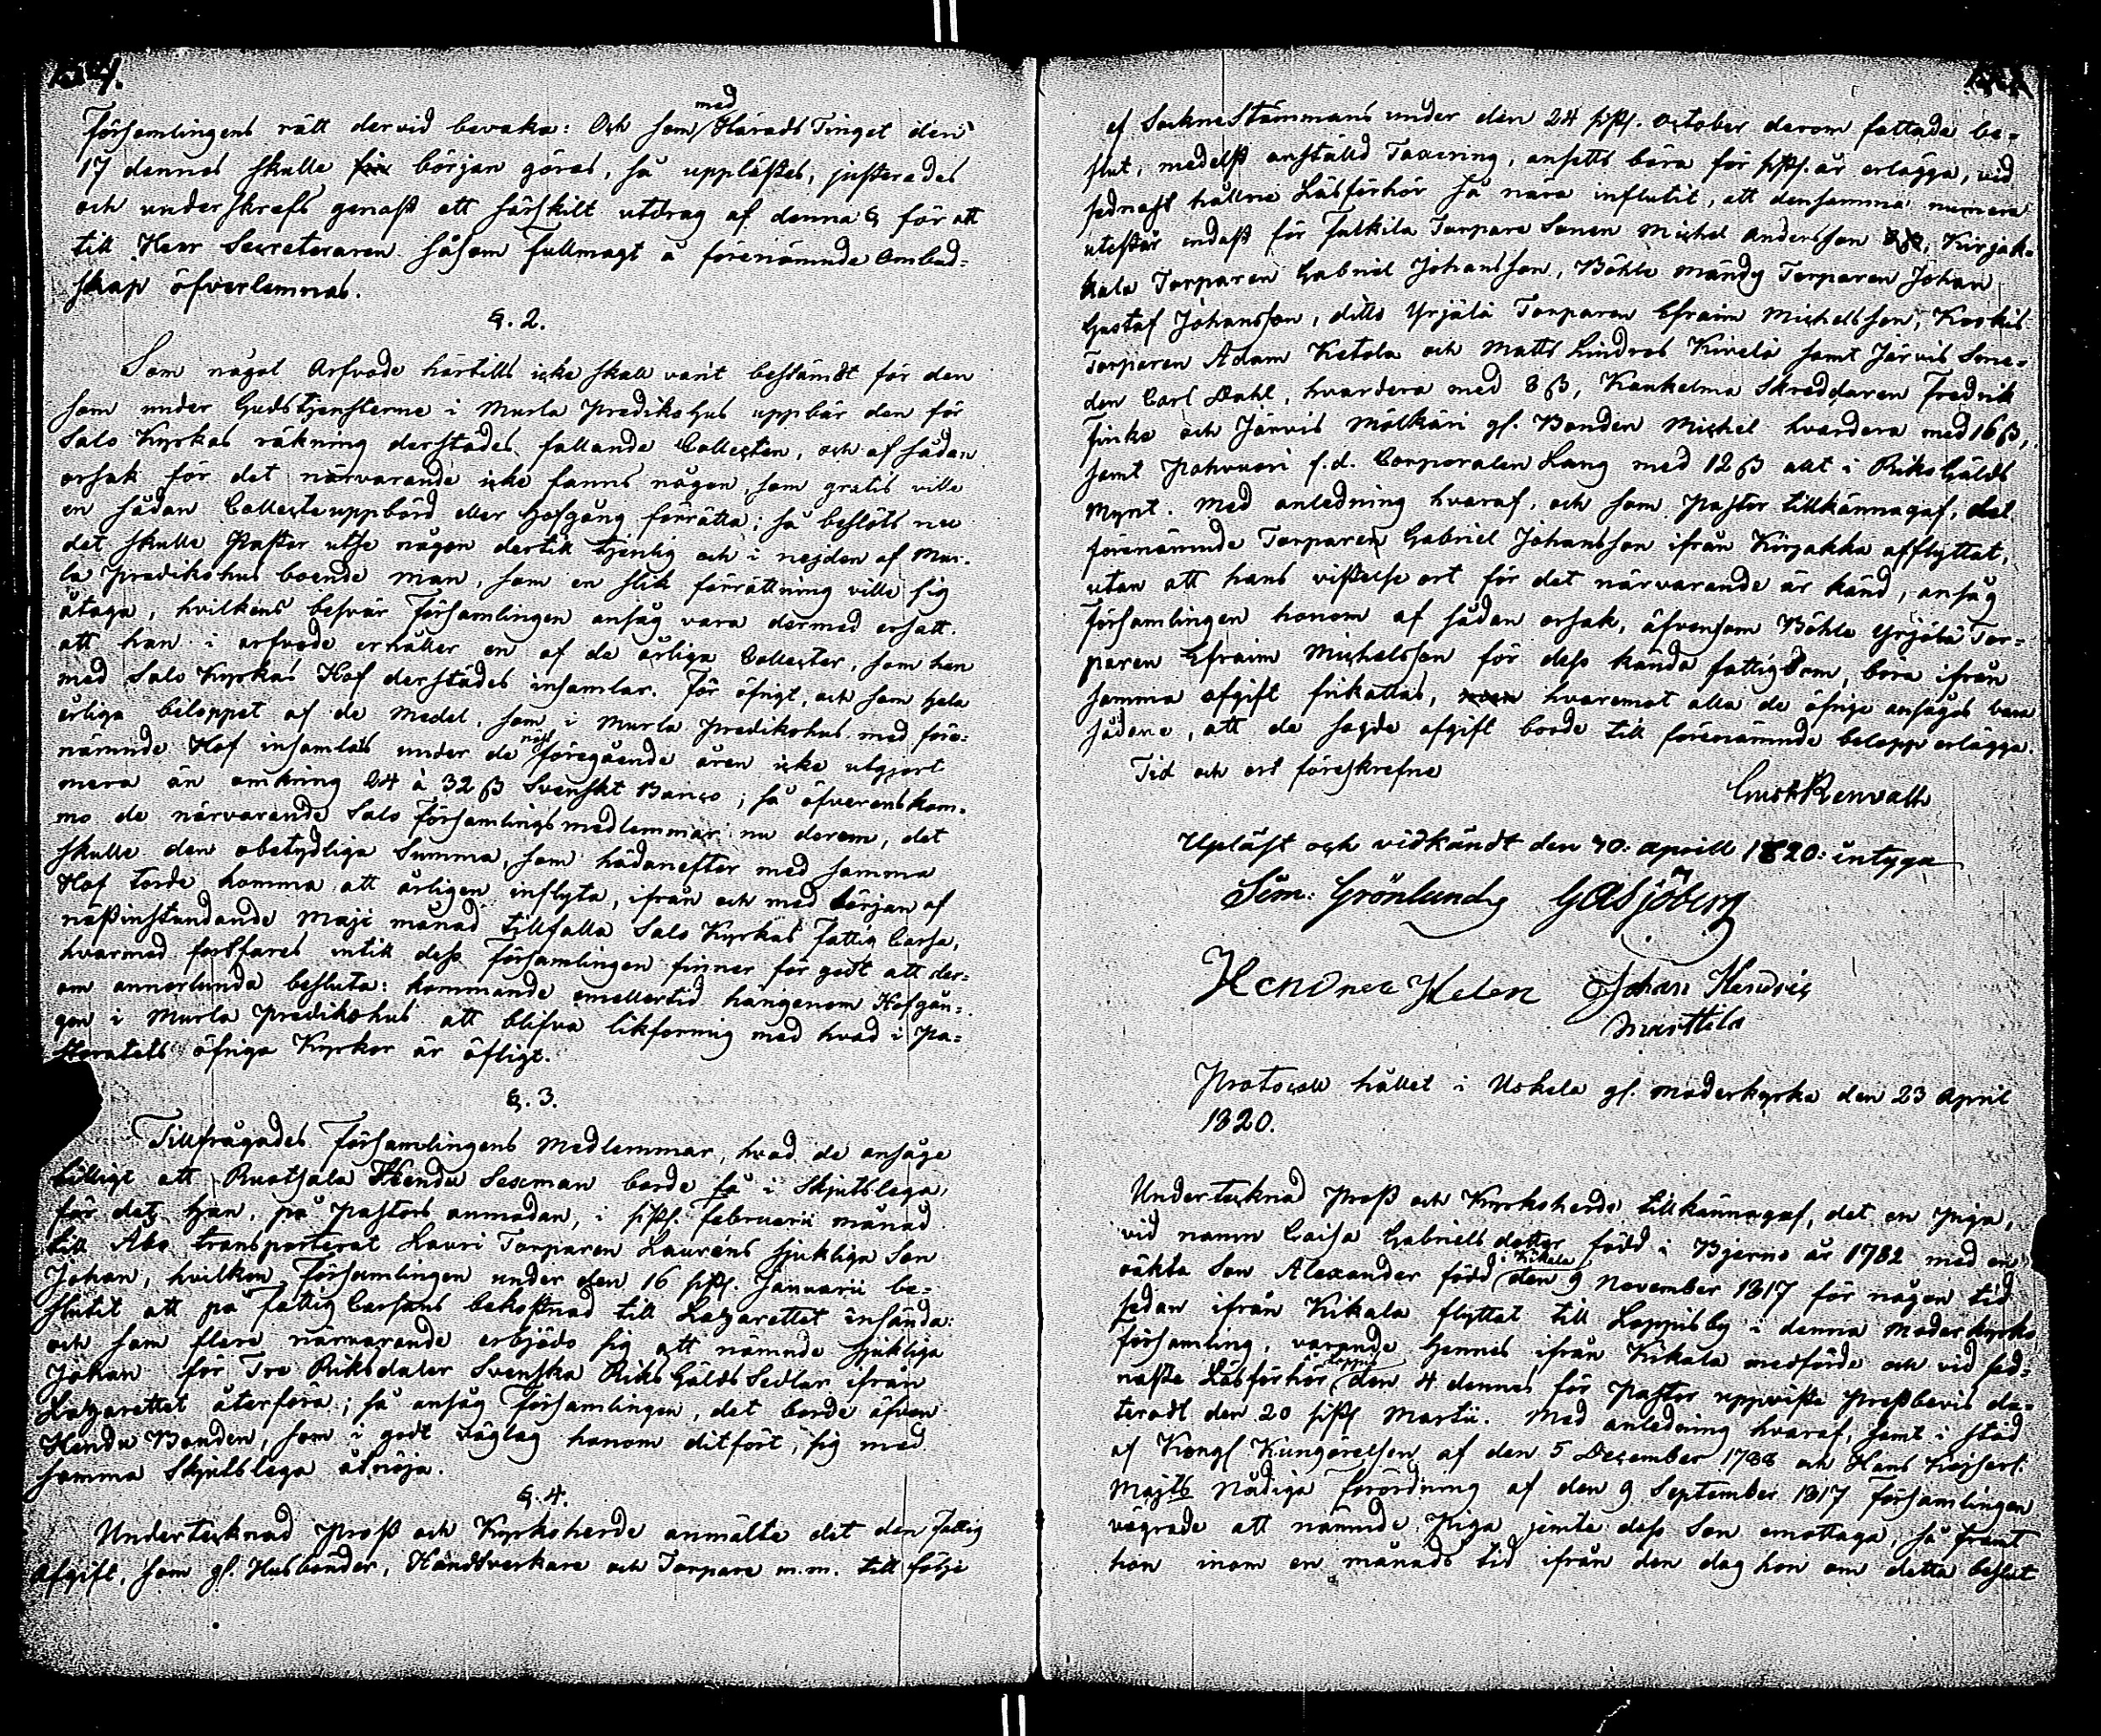 Församlingens rätt dervid bevaka: Och som med Härads Tinget den
17 dennes skulle början göras, så upplästes, justerades
och underskrefs genast ett särskilt utdrag af denna § för att
till Herr Secreteraren såsom fullmagt å förenämnde Ombud-
skap öfverlemnas.
§. 2.
Som något Arfvode härtills icke skall varit bestämdt för den
som under Gudstjensterne i Murla Predikohus uppbär den för
Salo Kyrkas räkning derstädes fallande Collecten, och af sådan
orsak för det närvarande icke fanns någon, som gratis ville
en sådan Collecteuppbörd eller Hofgång förrätta; så beslöts nu
det skulle Pastor utse någon dertill tjenlig och i nejden af Mur-
la Predikohus boende man, som en slik förrättning ville sig
åtaga, hvilkens besvär Församlingen ansåg vara dermed ersatt
att han i arfvode erhåller en af de årliga Collecter, som han
med Salo Kyrkas Hof derstädes insamlar. För öfrigt, och som hela
årliga beloppet af de Medel, som i Murla Predikohus med före-
nämnde Hof insamlats under de näst föregående åren icke utgjort
mera än omkring 24 à 32 ß Svenskt Banco; så öfverenskom-
mo de närvarande Salo Församlings medlemmar nu derom, det
skulle den obetydliga Summa, som hädanefter med samma
Hof torde komma att årligen inflyta, ifrån och med början af
nästinstundande Maji månad tillfalla Salo Kyrkas Fattig Cassa,
hvarmed fortfares intill dess Församlingen finner för godt att der-
om annorlunda besluta: kommande emellertid härigenom Hofgån-
gen i Murla Predikohus att blifva likformig med hvad i Pa-
storatets öfriga Kyrkor är öfligt.
§. 3.
Tillfrågades Församlingens Medlemmar, hvad de ansåge
billigt att Ruotsala Hendu Sexman borde få i Skjutslega,
för det han, på Pastors anmodan, i sistl. Februarii månad
till Åbo transporterat Lauri Torparen Lauréns sjukliga Son
Johan, hvilken Församlingen under den 16 sistl. Januarii be-
slutit att på Fattig Cassans bekostnad till Lazarettet insända:
och som flere närvarande erbjödo sig att nämnde sjukliga
Johan för Tre Riksdaler Svenska Riks Gälds Sedlar ifrån
Lazarettet återföra; så ansåg Församlingen, det borde äfven
Hendu Bonden, som i godt väglag honom ditfört, sig med
samma Skjutslega åtnöja.
§. 4.
Undertecknad Prost och Kyrkoherde anmälte det den Fattig
Afgift, som gl. Husbönder, Handtverkare och Torpare m.m. till följe
af SockneStämmans under den 24 sistl. October derom fattade be-
slut, medelst anställd Taxering, ansetts böra för sistl. år erlägga, vid
sednast hållne Läsförhör så nära influtit, att densamma numera
utestår endast för Talkila Torpare Sonen Michel Andersson, Kirjak-
kala Torparen Gabriel Johansson, Böhle Mändy Torparen Johan
Gustaf Johansson, ditto Yrjälä Torparen Efraim Michelsson, Koskis
Torparen Adam Ketola och Matts Lindros Kivelä samt Järvis Sme-
den Carl Dahl, hvardera med 8 ß, Kaukelma Skreddaren Fredrik
Finke och Järvis Mölkäri gl. Bonden Michel hvardera med 16 ß,
samt Pahvuori f.d. Corporalen Lang med 12 ß allt i Riks Gälds
Mynt. Med anledning hvaraf, och som Pastor tillkännagaf, det
förenämnde Torparen Gabriel Johansson ifrån Kirjakka afflyttat,
utan att hans vistelse ort för det närvarande är känd, ansåg
Församlingen honom af sådan orsak, äfvensom Böhle Yrjälä Tor-
paren Efraim Michelsson för dess kända fattigdom, böra ifrån
samma afgift frikallas, hvaremot alla de öfrige ansågos vara
sådane, att de sagde afgift borde till förenämnde belopp erlägga.
Tid och ort föreskrefne
Gust. Renvall
Upläst och vidkändt den 30: aprill 1820: intyga
Sim: Grönlund GASjöberg
Hendrick Helen Johan Hendric
Marttila
Protocoll hållet i Uskela gl. moderkyrka den 23 April
1820.
Undertecknad Prost och Kyrkoherde tillkännagaf, det en Piga,
vid namn Caisa Gabriels dotter född i Bjerno år 1782 med en
oäkta Son Alexander född i Kikala den 9 November 1817 för någon tid
sedan ifrån Kikala flyttat till Loppis by i denna Moderkyrko
Församling, varande hennes ifrån Kikala medförde och vid sed-
naste Läsförhör i Loppis den 4 dennes för Pastor uppviste Prestbevis da-
teradt den 20 sistl. Martii. Med anledning hvaraf, samt i stöd
af Kongl Kungörelsen af den 5 December 1788 och Hans Kejserl.
Majts Nådiga Förordning af den 9 September 1817 Församlingen
vägrade att nämnde Piga jemte dess Son emottaga, så framt
hon inom en månads tid ifrån den dag hon om detta beslut